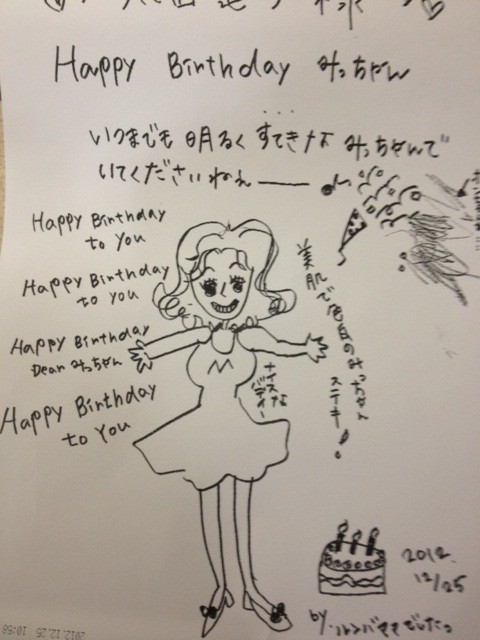 Happy Birthday みっちゃん
いつまでも明るくすてきなみっちゃんで
いてくださいねぇー
Happy Birthday
to You
Happy Birthday
to you
Happy Birthday
Dear みっちゃん
Happy Birthday
to You
美肌で色白のみっちゃん
ステキ!
ナイスな
バディー
2012.
12/25
by.ルンバママでしたっ
2012.12.25 10:58